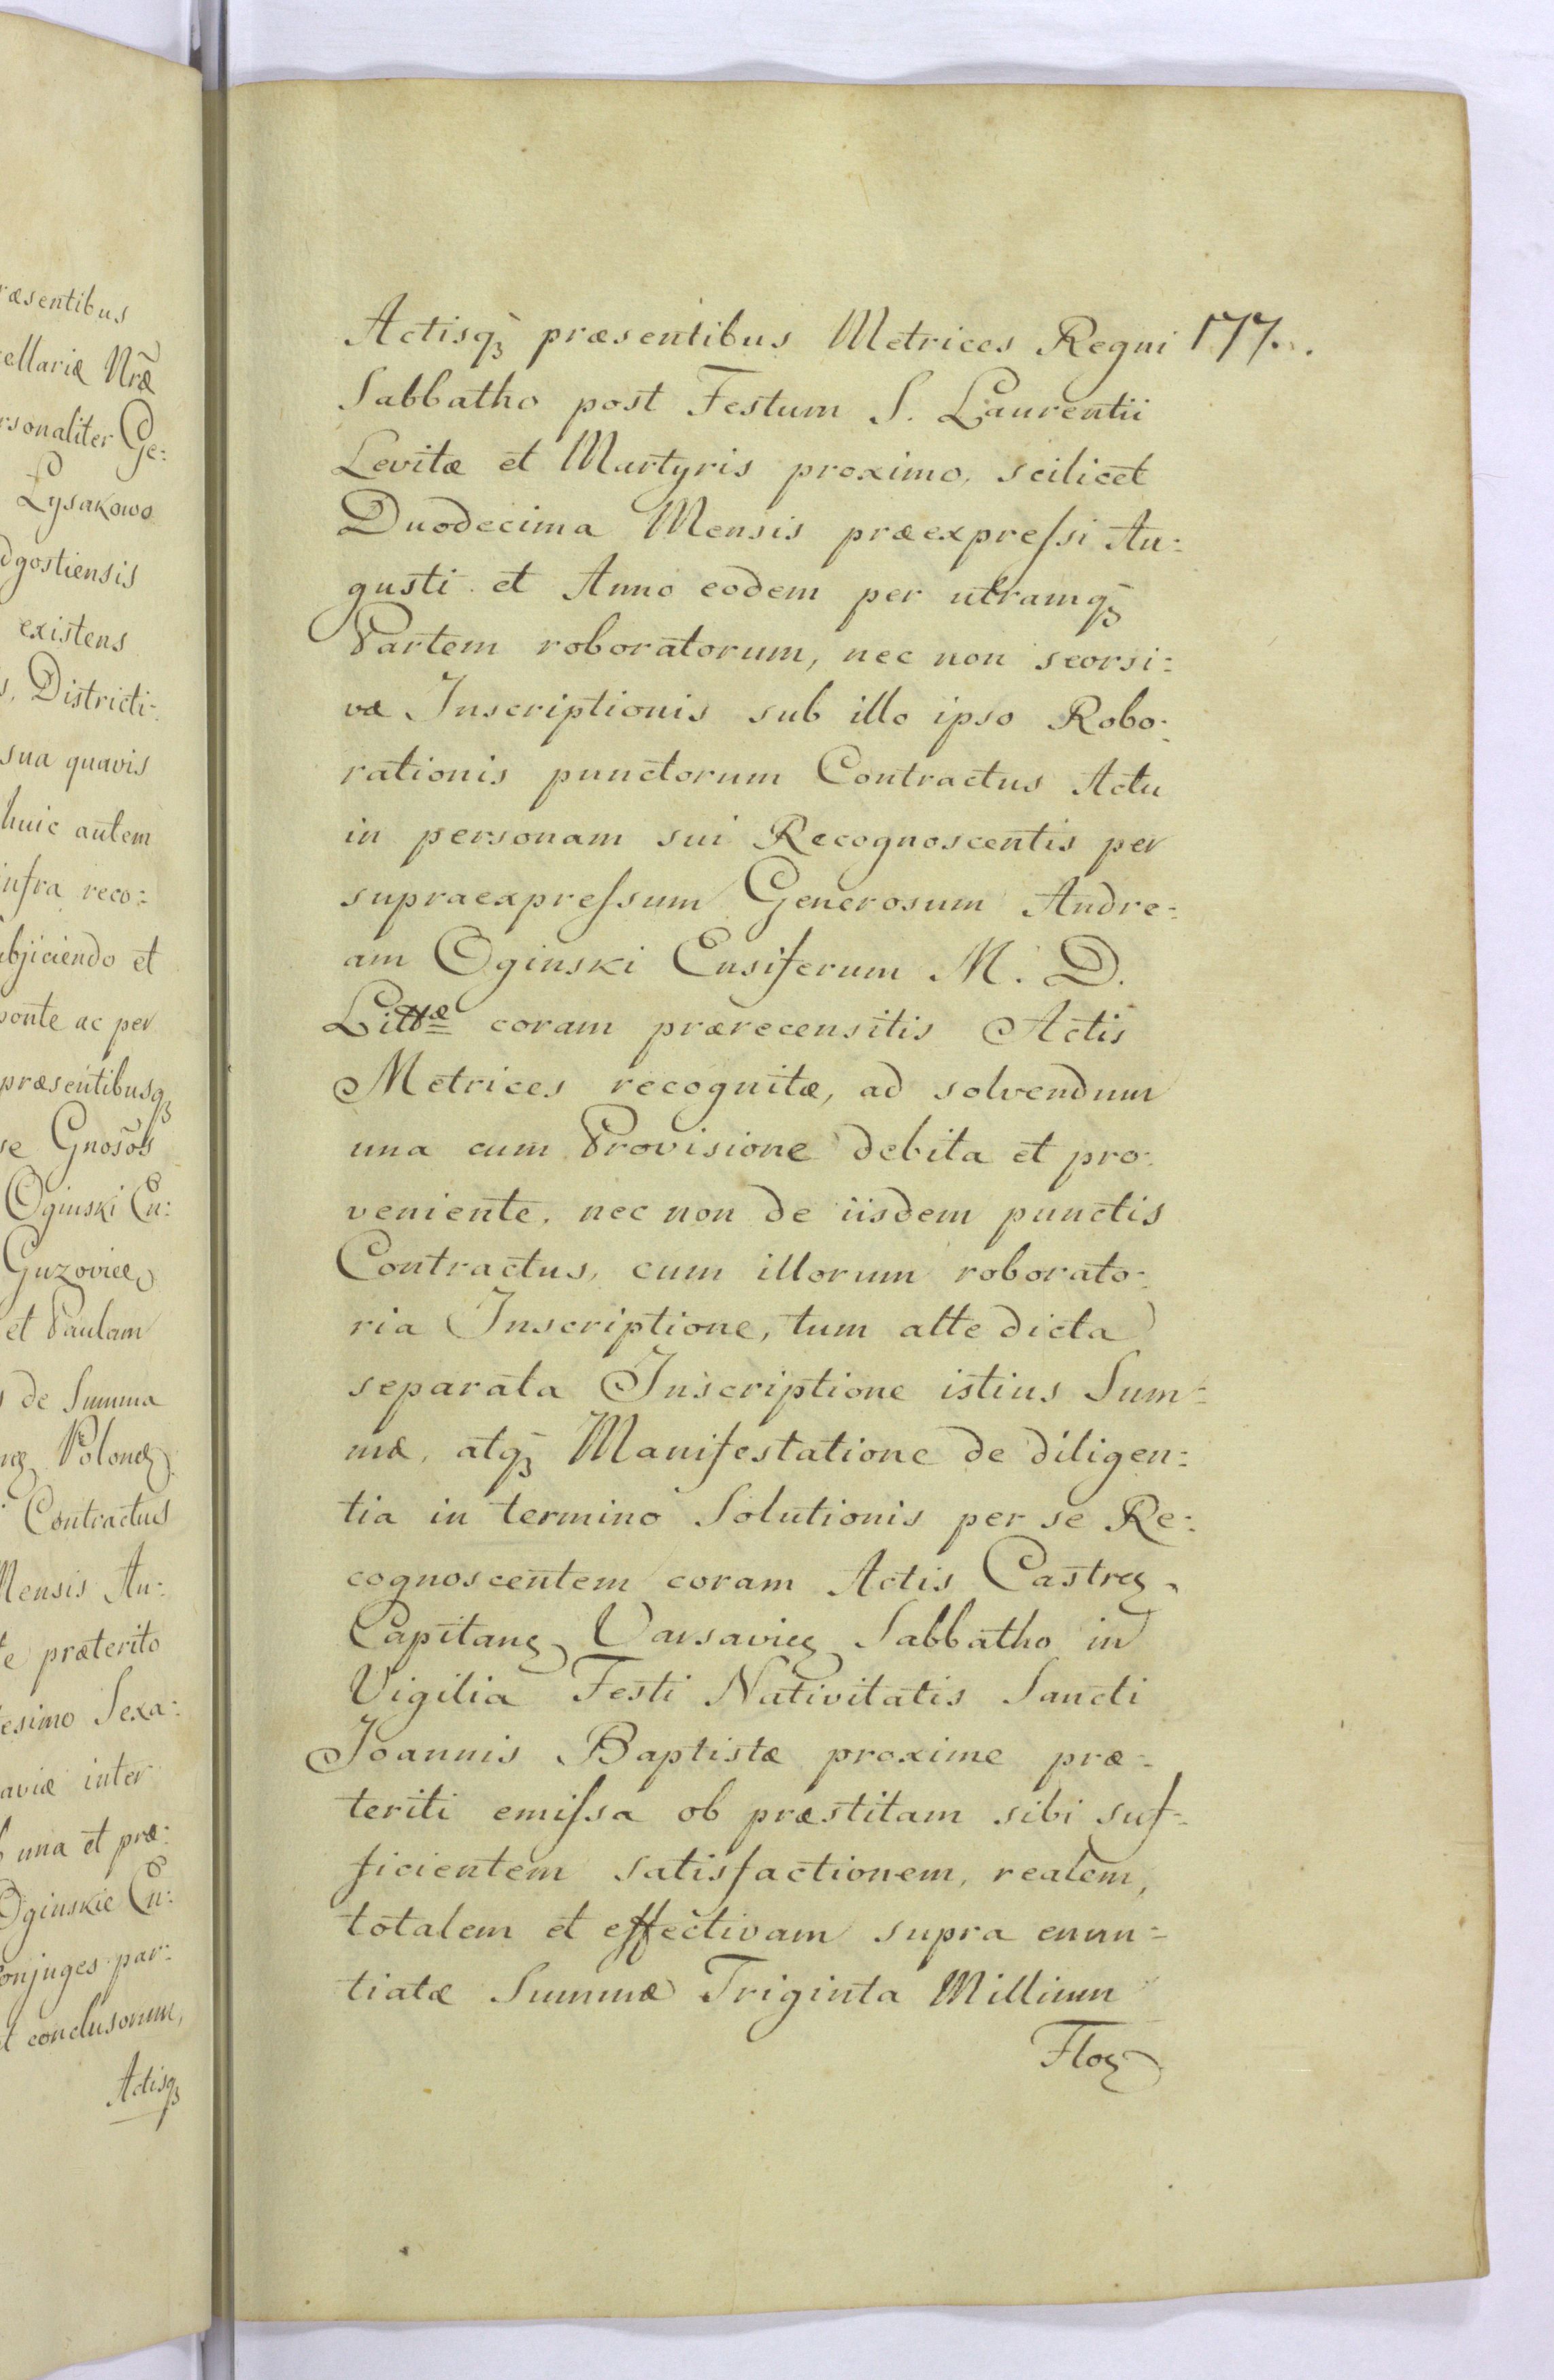 ræsentibus
ellariæ Nræ̃
rsonaliter Ge:
Lysakowo
dgostiensis
existens
s, Districti-
sua quavis
huic autem
infra reco:
bjiciendo et
ponte ac per
præsentibusqȝ
se Gnosõs
Oginski En:
et Paulam
de Summa
Contractus
Mensis Au:
te præterito
esimo Sexa:
aviæ inter
una et præ:
Oginskie En:
onjuges par:
t conclusorum,
Actisqȝ
Actisqȝ præsentibus Metrices Regni 177.
Sabbatho post Festum S. Laurentii
Levitæ et Martyris proximo, scilicet
Duodecima Mensis præexpreſsi Au:
gusti et Anno eodem per utramqȝ
Partem roboratorum, nec non seorsi:
væ Inscriptionis sub illo ipso Robo:
rationis punctorum Contractus Actu
in personam sui Recognoscentis per
supraexpreſsum Generosum Andre:
am Oginski Ensiferum M. D.
Littæ coram prærecensitis Actis
Metrices recognitæ, ad solvendum
una cum Provisione debita et pro:
veniente, nec non de iisdem punctis
Contractus, cum illorum roborato:
ria Inscriptione, tum alte dicta
separata Inscriptione istius Sum:
mæ, atqȝ Manifestatione de diligen:
tia in termino Solutionis per se Re:
cognoscentem coram Actis Castreȝ
Capitaneȝ Varsavieȝ Sabbatho in
Vigilia Festi Nativitatis Sancti
Joannis Baptistæ proxime præ:
teriti emiſsa ob præstitam sibi suf:
ficientem satisfactionem, realem,
totalem et effectivam supra enun:
tiatæ Summæ Triginta Millium
Floȝ